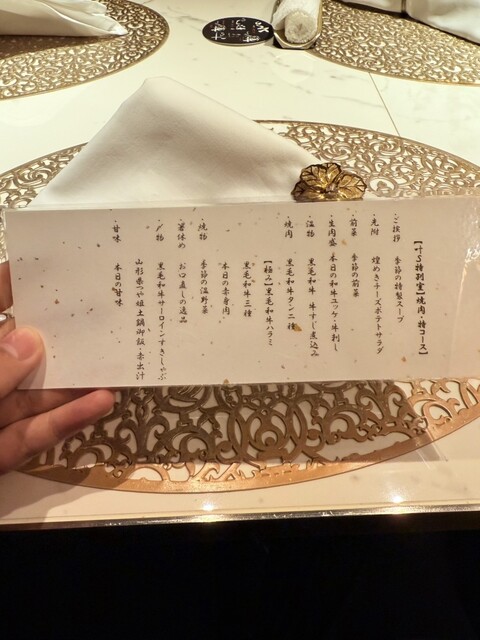 【叶S特別室】焼肉・特コース】
・ご挨拶　季節の特製スープ
・先附　煌めきチーズポテトサラダ
・前菜　季節の前菜
・生肉盛　本日の和牛ユッケ・牛刺し
・温物　黒毛和牛　牛すじ煮込み
・焼肉　黒毛和牛タン二種
【極み】黒毛和牛ハラミ
黒毛和牛三種
本日の赤身肉
・焼物　季節の温野菜
・箸休め　お口直しの逸品
・〆物　黒毛和牛サーロインすきしゃぶ
山形県つや姫土鍋御飯・赤出汁
・甘味　本日の甘味